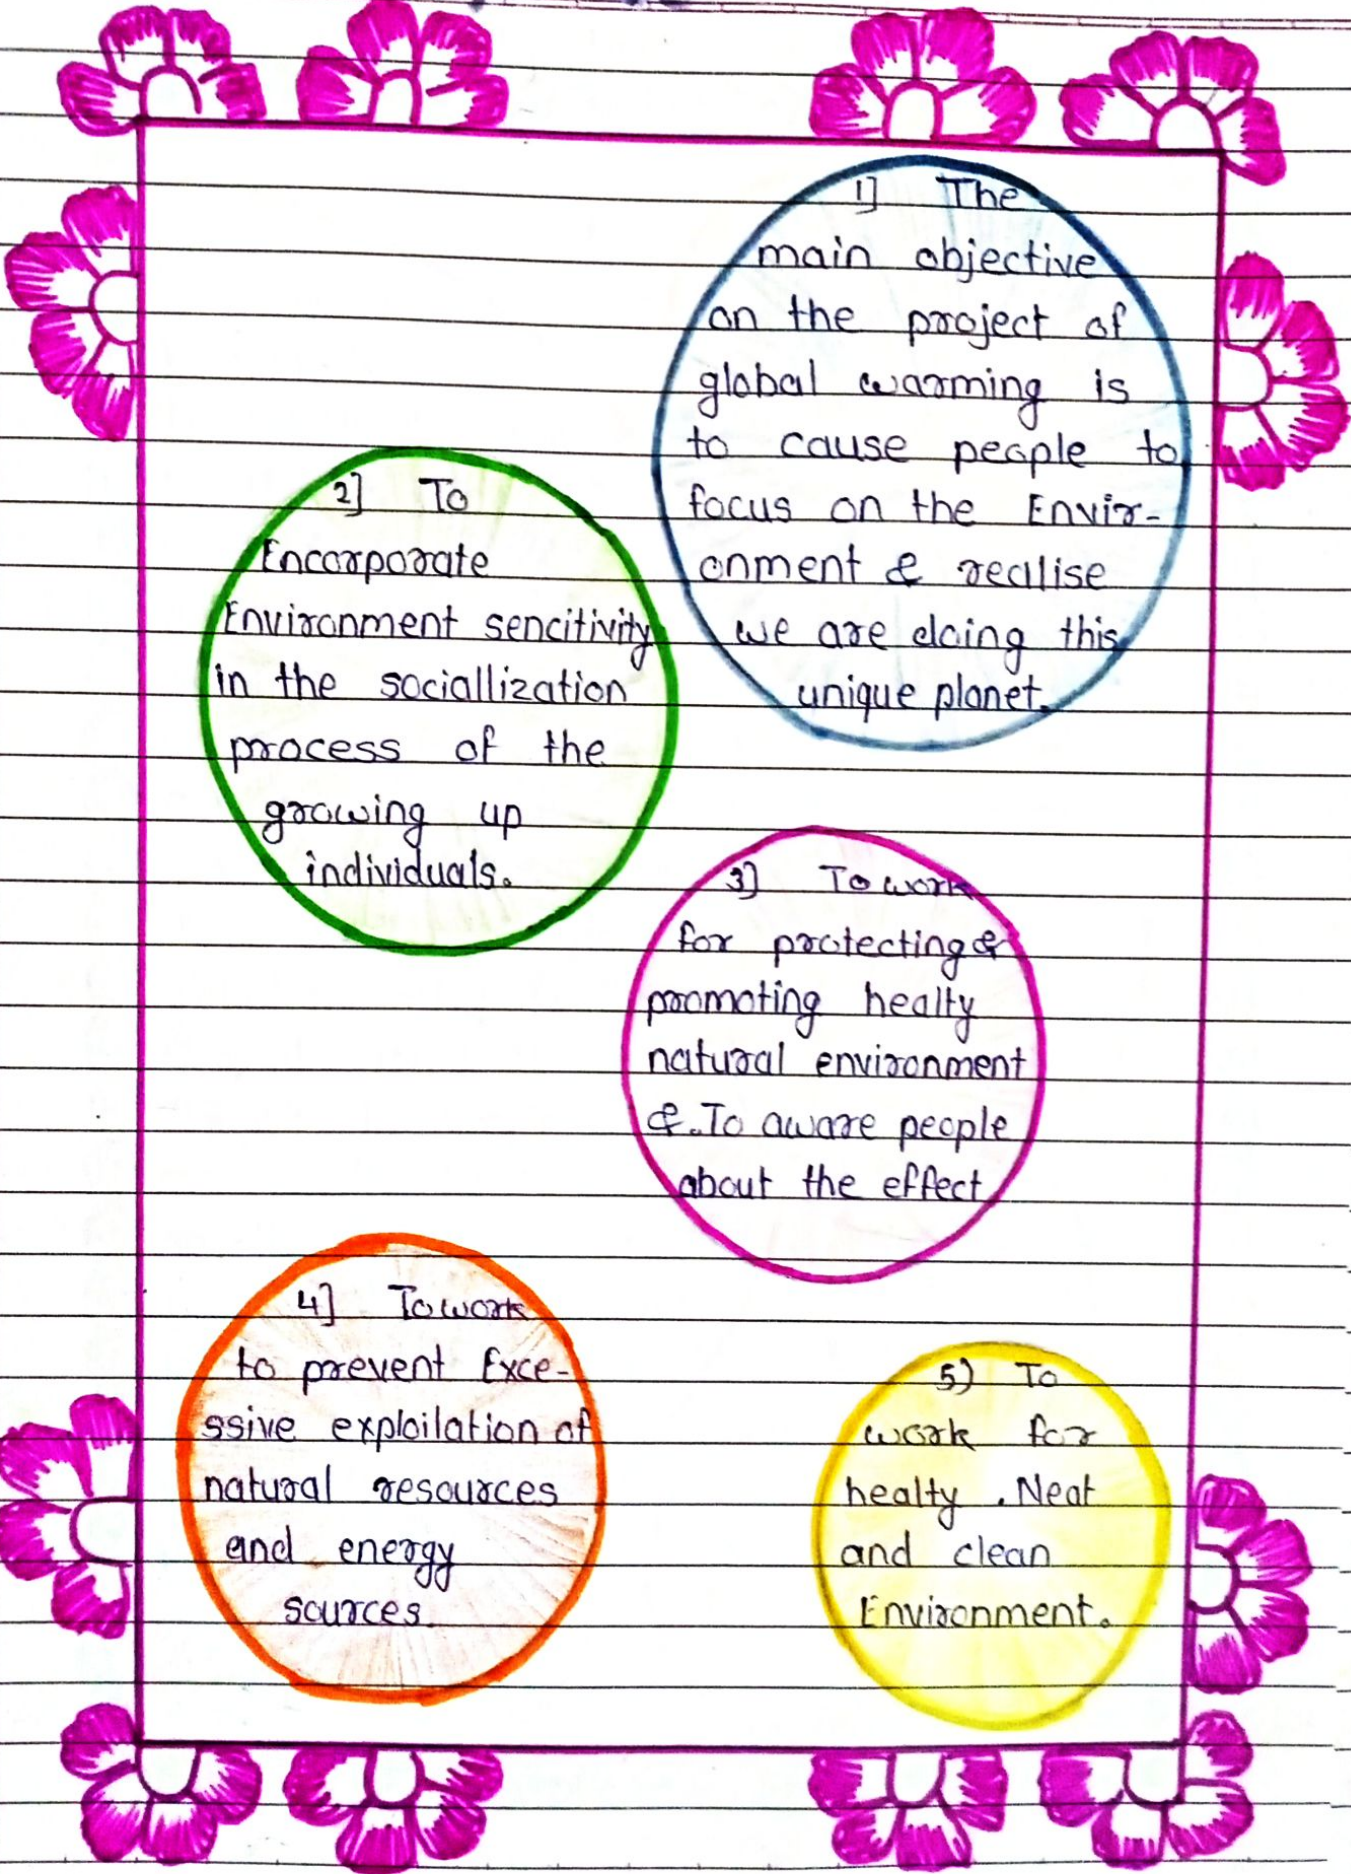 1] The
main objective
on the project of
global warming is
to cause people to
focus on the Envir-
onment & realise
we are doing this
unique planet.
2] To
Encorporate
Environment sencitivity
in the sociallization
process of the
growing up
individuals.
3] To work
for protecting &
promoting healty
natural environment
&.To aware people
about the effect
4] To work
to prevent Exce-
ssive exploilation of
natural resources
and energy
sources.
5) To
work for
healty . Neat
and clean
Environment.